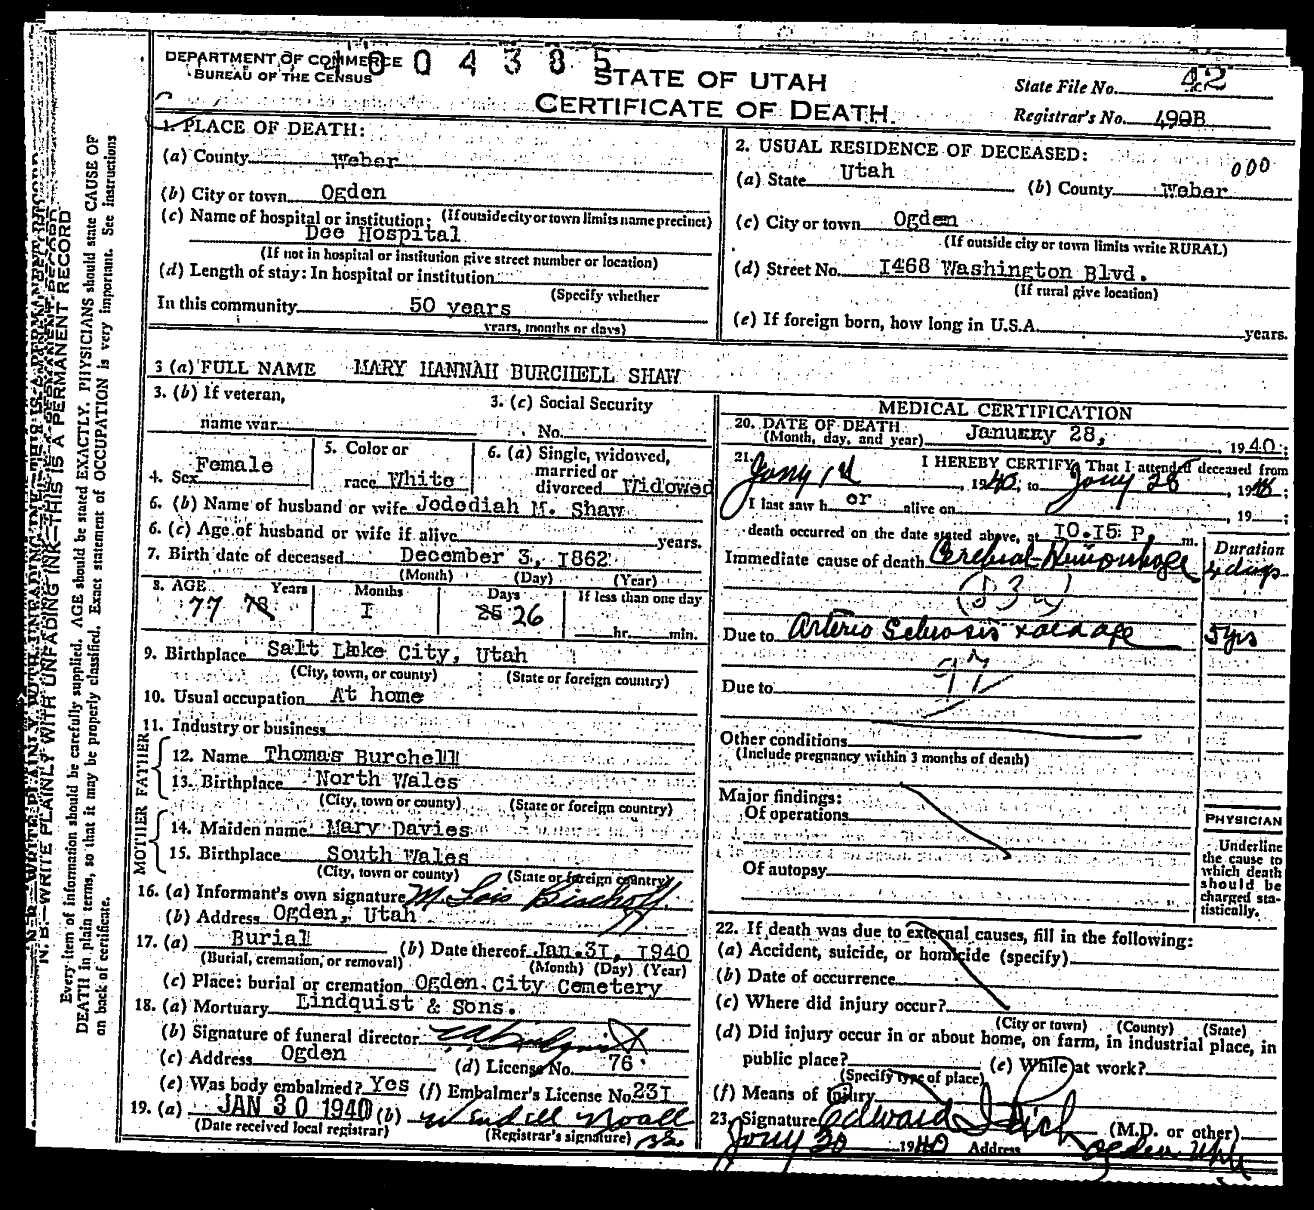 DEPARTMENT OF COMMERCE
BUREAU OF THE CENSUS
004385
STATE OF UTAH
CERTIFICATE OF DEATH.
State File No. 42
Registrar's No. 490B
1. PLACE OF DEATH:
(a) County Weber
(b) City or town Ogden
(c) Name of hospital or institution: (If outside city or town limits name precinct)
Dee Hospital
(If not in hospital or institution give street number or location)
(d) Length of stay: In hospital or institution
(Specify whether
In this community 50 years
years, months or days)
2. USUAL RESIDENCE OF DECEASED:
000
(a) State Utah (b) County Weber
(c) City or town Ogden
(If outside city or town limits write RURAL)
(d) Street No. 1468 Washington Blvd.
(If rural give location)
(e) If foreign born, how long in U.S.A. years.
3 (a) FULL NAME MARY HANNAH BURCHELL SHAW
3. (b) If veteran,
name war
3. (c) Social Security
No.
4. Sex Female
5. Color or
race White
6. (a) Single, widowed,
married or
divorced Widowed
6. (b) Name of husband or wife Jedediah M. Shaw
6. (c) Age of husband or wife if alive years.
7. Birth date of deceased December 3, 1862
(Month) (Day) (Year)
8. AGE Years Months Days If less than one day
77 78 1 25 26 hr. min.
9. Birthplace Salt Lake City, Utah
(City, town, or county) (State or foreign country)
10. Usual occupation At home
11. Industry or business
FATHER
12. Name Thomas Burchell
13. Birthplace North Wales
(City, town or county) (State or foreign country)
MOTHER
14. Maiden name Mary Davies
15. Birthplace South Wales
(City, town or county) (State or foreign country)
16. (a) Informant's own signature M. Lois Bischoff
(b) Address Ogden, Utah
17. (a) Burial (b) Date thereof Jan. 31, 1940
(Burial, cremation, or removal) (Month) (Day) (Year)
(c) Place: burial or cremation Ogden City Cemetery
18. (a) Mortuary Lindquist & Sons.
(b) Signature of funeral director
(c) Address Ogden (d) License No. 76
(e) Was body embalmed? Yes (f) Embalmer's License No. 231
19. (a) JAN 30 1940 (b) Wendell Noall
(Date received local registrar) (Registrar's signature)
MEDICAL CERTIFICATION
20. DATE OF DEATH
(Month, day, and year) January 28, 1940;
21. I HEREBY CERTIFY, That I attended deceased from
Jany 1st, 1940, to Jany 28, 1940;
I last saw h er alive on , 19 ;
death occurred on the date stated above, at 10.15 P. m.
Duration
Immediate cause of death Cerebral Hemorrhage 4 days
Due to Arterio Sclerosis + old age 5 yrs
97
Due to
Other conditions
(Include pregnancy within 3 months of death)
Major findings:
Of operations
Of autopsy
PHYSICIAN
Underline
the cause to
which death
should be
charged sta-
tistically.
22. If death was due to external causes, fill in the following:
(a) Accident, suicide, or homicide (specify)
(b) Date of occurrence
(c) Where did injury occur?
(City or town) (County) (State)
(d) Did injury occur in or about home, on farm, in industrial place, in
public place? (e) While at work?
(Specify type of place)
(f) Means of injury
23. Signature Edward I Rich (M.D. or other)
Jany 30 1940 Address Ogden Utah
N. B.—WRITE PLAINLY WITH UNFADING INK—THIS IS A PERMANENT RECORD
Every item of information should be carefully supplied. AGE should be stated EXACTLY. PHYSICIANS should state CAUSE OF
DEATH in plain terms, so that it may be properly classified. Exact statement of OCCUPATION is very important. See instructions
on back of certificate.